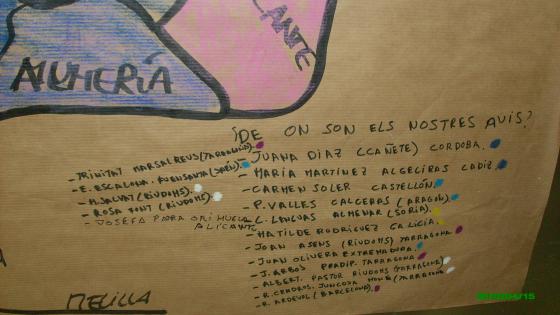 ALICANTE
ALMERÍA
¿DE ON SON ELS NOSTRES AVIS?
- TRINITAT MARSAL REUS (TARRAGONA)
- E. ESCALONA. FUENSANTA (JAÉN)
- M. SALVAT (RIUDOMS)
- ROSA FONT (RIUDOMS)
- JOSEFA PARRA ORIHUELA
ALICANTE
- JUANA DÍAZ (CAÑETE) CORDOBA.
- MARÍA MARTÍNEZ ALGECIRAS CADIZ
- CARMEN SOLER CASTELLÓN
- P. VALLES CALCERAS (ARAGON)
- C. LENGUAS ALMENAR (SORIA)
- MATILDE RODRÍGUEZ GALICIA
- JOAN ASENS (RIUDOMS) TARRAGONA
- JUAN OLIVERA EXTREMADURA
- J. ARBÓS PRADIP. TARRAGONA
- ALBERT. PASTOR RIUDOMS (TARRAGONA)
- R. CENDROS. JUNCOSA (TARRAGONA)
- R. ARDEVOL (BARCELONA)
MELILLA